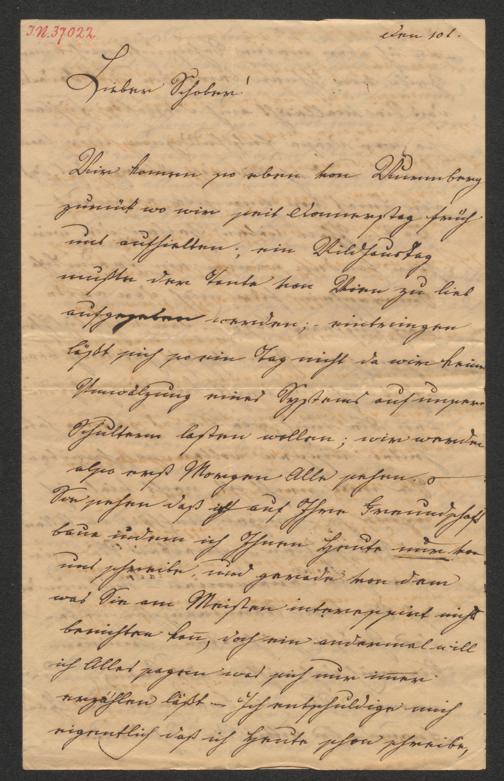 I.N. 37022.
den 10t.
Lieber Schober!
Wir komen so eben von Wurmberg
zurück wo wir seit Donnerstag früh
uns aufhielten; ein Wildhaustag
mußte der Tante von Wien zu lieb
aufgegeben werden; eintringen
läßt sich so ein Tag nicht da wir keine
Umwälzung eines Systems auf unsere
Schultern lasten wollen; wir werden
also erst Morgen Alle sehen.
Sie sehen daß ich auf Ihre Freundschaft
baue indem ich Ihnen heute nur von
uns schreibe, und gerade von dem
was Sie am Meisten interessirt nicht
berichten kan, doch ein andermal will
ich Alles sagen was sich nur imer
erzählen läßt – Ich entschuldige mich
eigentlich daß ich heute schon schreibe,